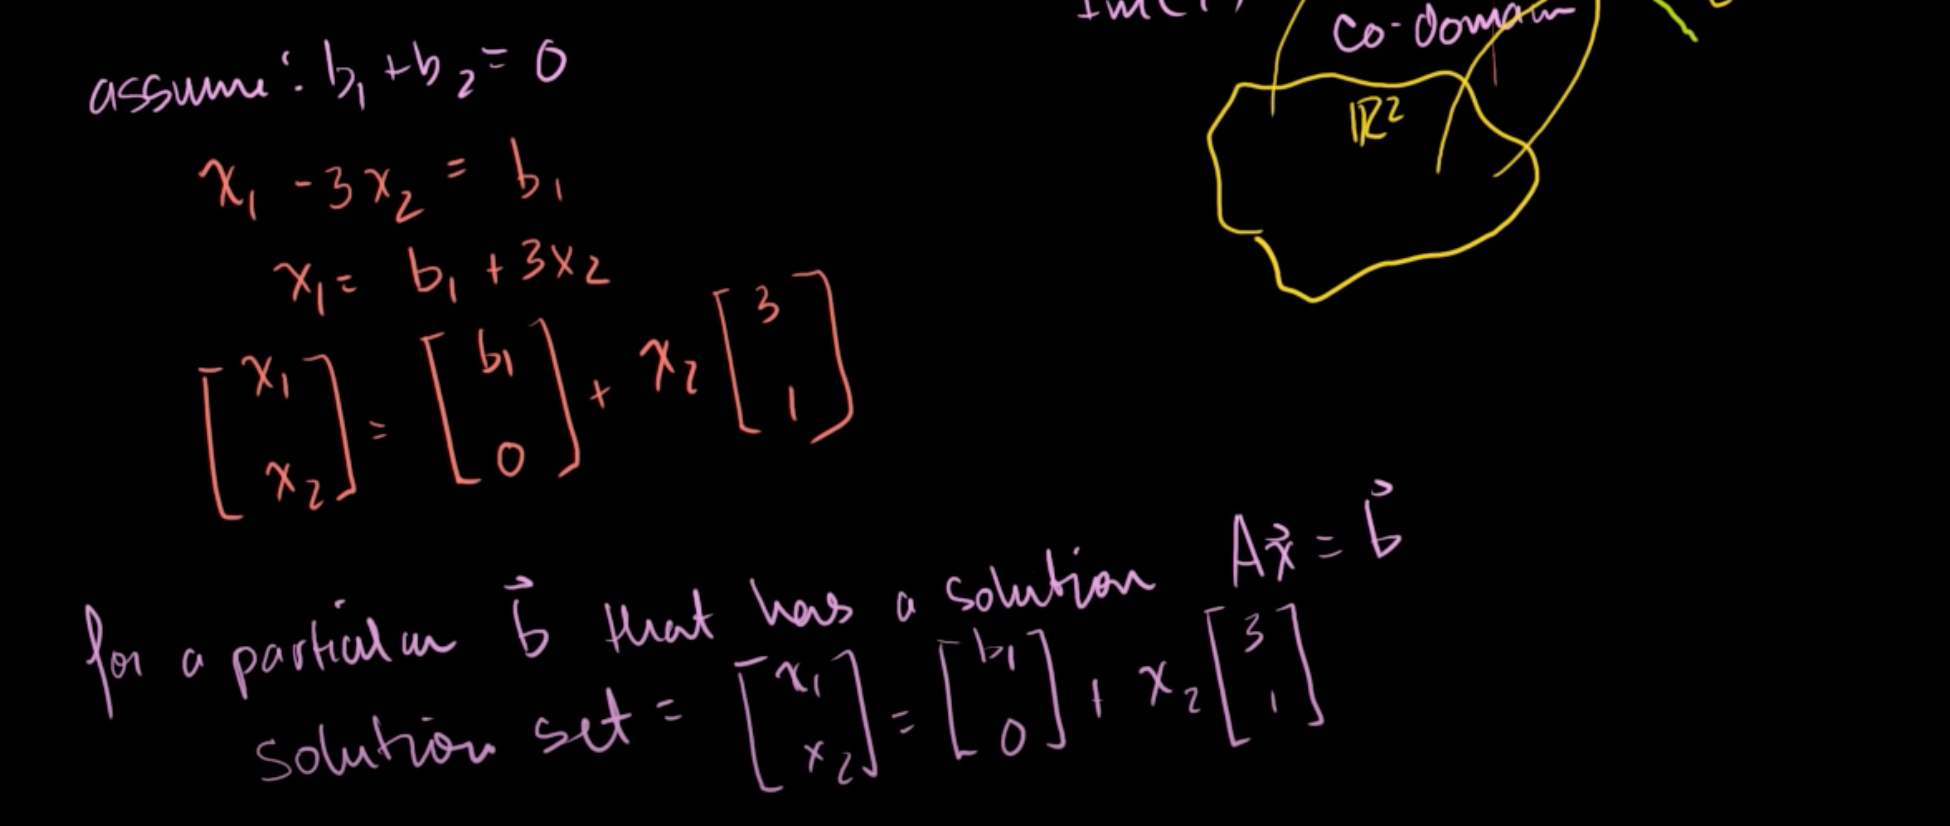 assume: b₁ + b₂ = 0
x₁ - 3x₂ = b₁
x₁ = b₁ + 3x₂
[x₁ x₂] = [b₁ 0] + x₂ [3 1]
Co-domain
ℝ²
for a particular b⃗ that has a solution Ax⃗ = b⃗
solution set = [x₁ x₂] = [b₁ 0] + x₂ [3 1]